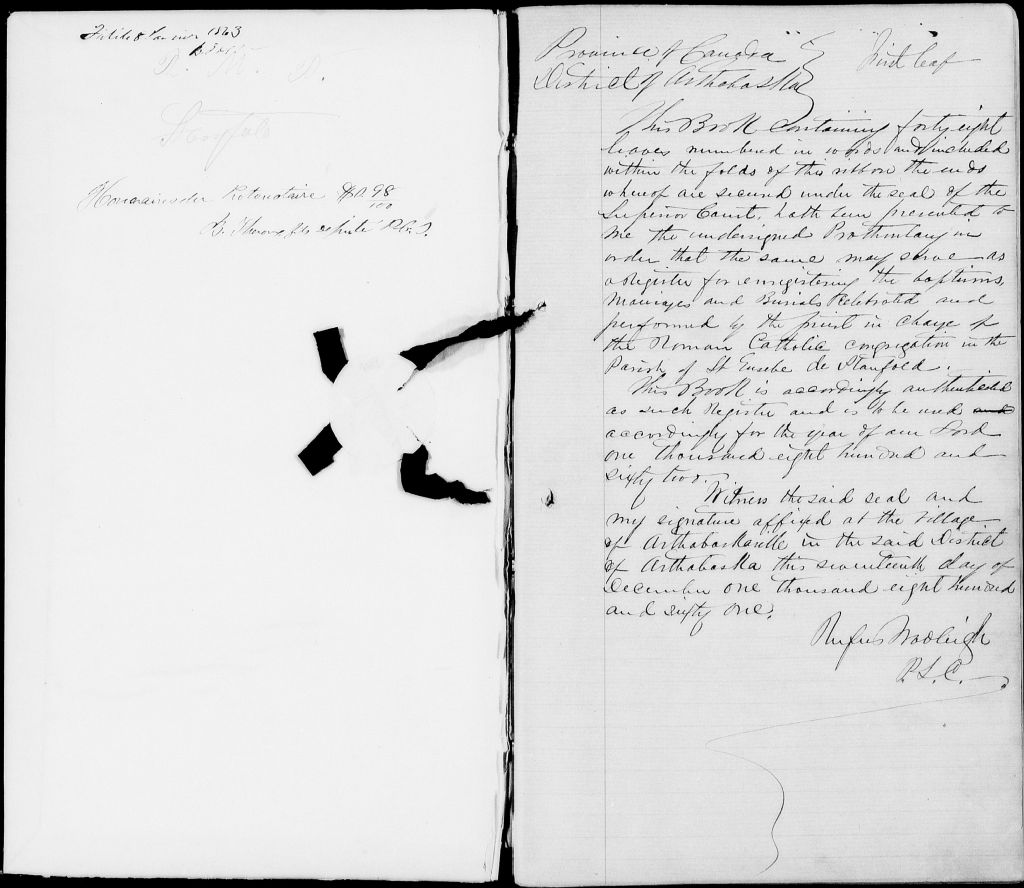 1863
R. M. P.
Stanfold
Honoraires du Protonotaire $0 98/100
député P.C.S.
Province of Canada } First leaf
District of Arthabaska
This Book containing forty eight
leaves numbered in words and included
within the folds of this ribbon the ends
whereof are secured under the seal of the
Superior Court, hath been presented to
me the undersigned Prothonotary in
order that the same may serve as
a Register for enregistering the baptisms,
Marriages and Burials Celebrated and
performed by the priest in charge of
the Roman Catholic congregation in the
Parish of St Eusebe de Stanfold.
This Book is accordingly authenticated
as such Register and is to be used and
accordingly for the year of our Lord
one thousand eight hundred and
sixty two.
Witness the said seal and
my signature affixed at the Village
of Arthabaskaville in the said District
of Arthabaska this seventeenth day of
December one thousand eight hundred
and sixty one.
Rufus Wadleigh
P.S.C.